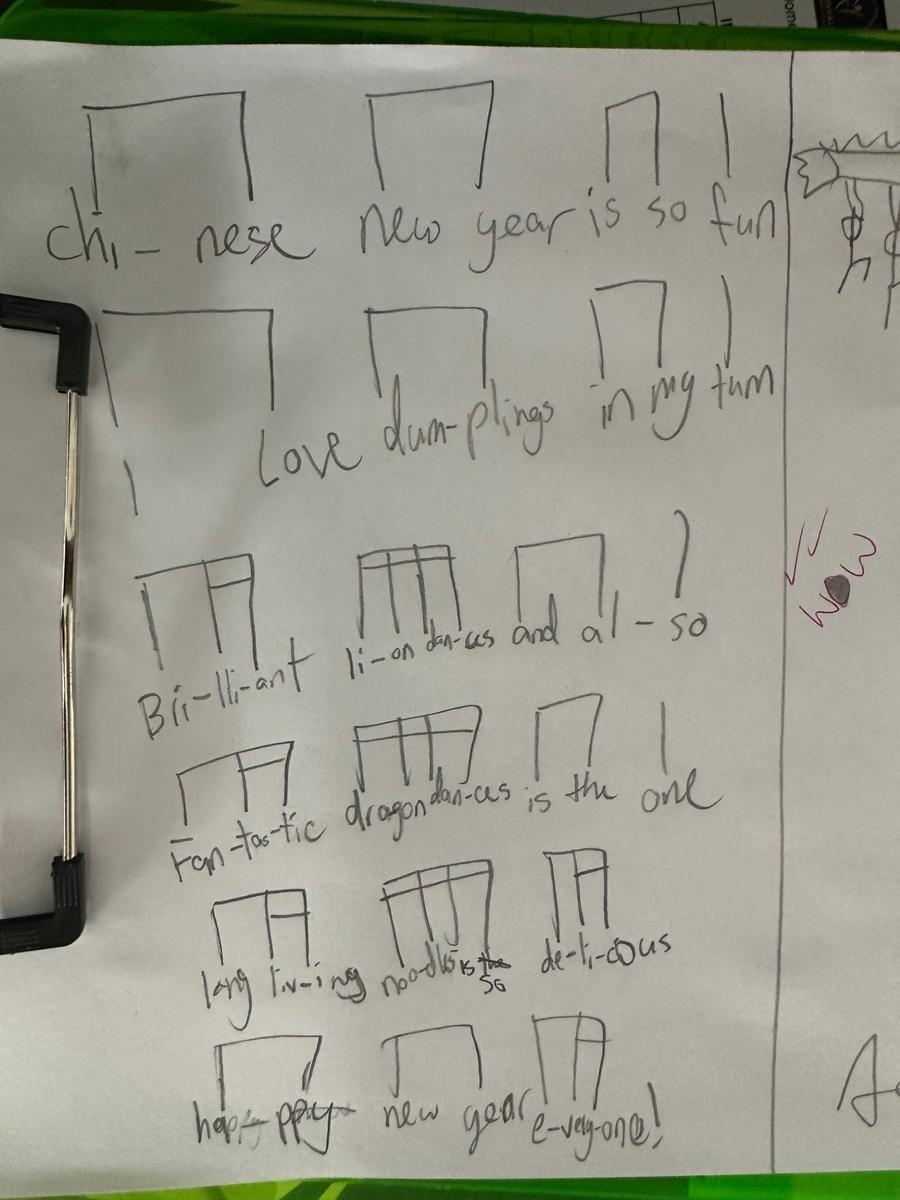 chi - nese new year is so fun
I Love dum-plings in my tum
Bri-lli-ant li-on dan-ces and al - so
Fan-tas-tic dragon dan-ces is the one
long liv-ing noo-dles is so de-li-cous
hap-ppy new year e-very-one!
WOW